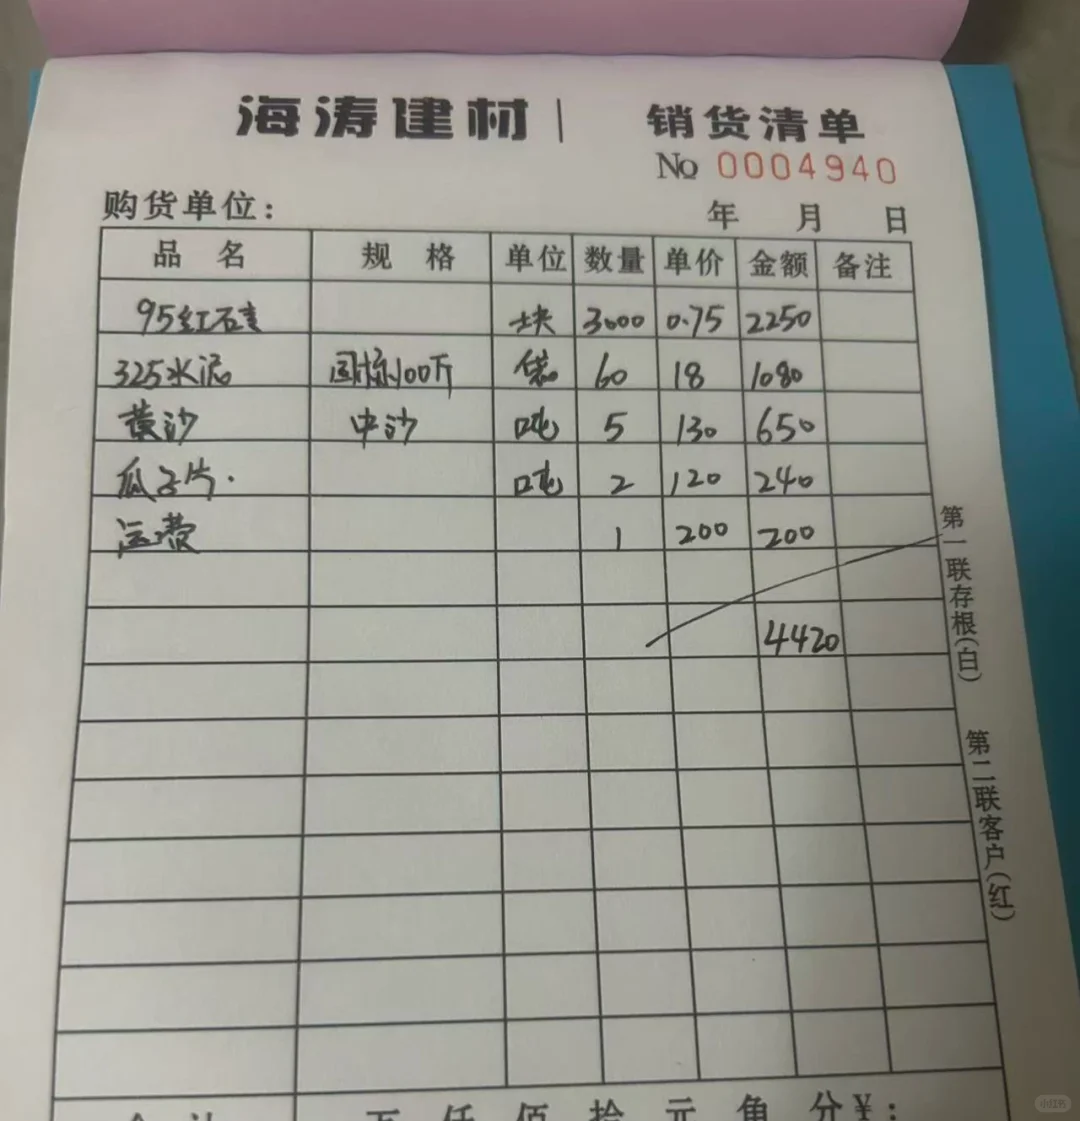 海涛建材| 销货清单
No 0004940
购货单位: 年 月 日
品名 规格 单位 数量 单价 金额 备注
95红砖 块 3000 0.75 2250
325水泥 国标100斤 袋 60 18 1080
黄沙 中沙 吨 5 130 650
瓜子片. 吨 2 120 240
运费 1 200 200
4420
合计 万 仟 佰 拾 元 角 分¥:
第一联存根(白)
第二联客户(红)
小红书